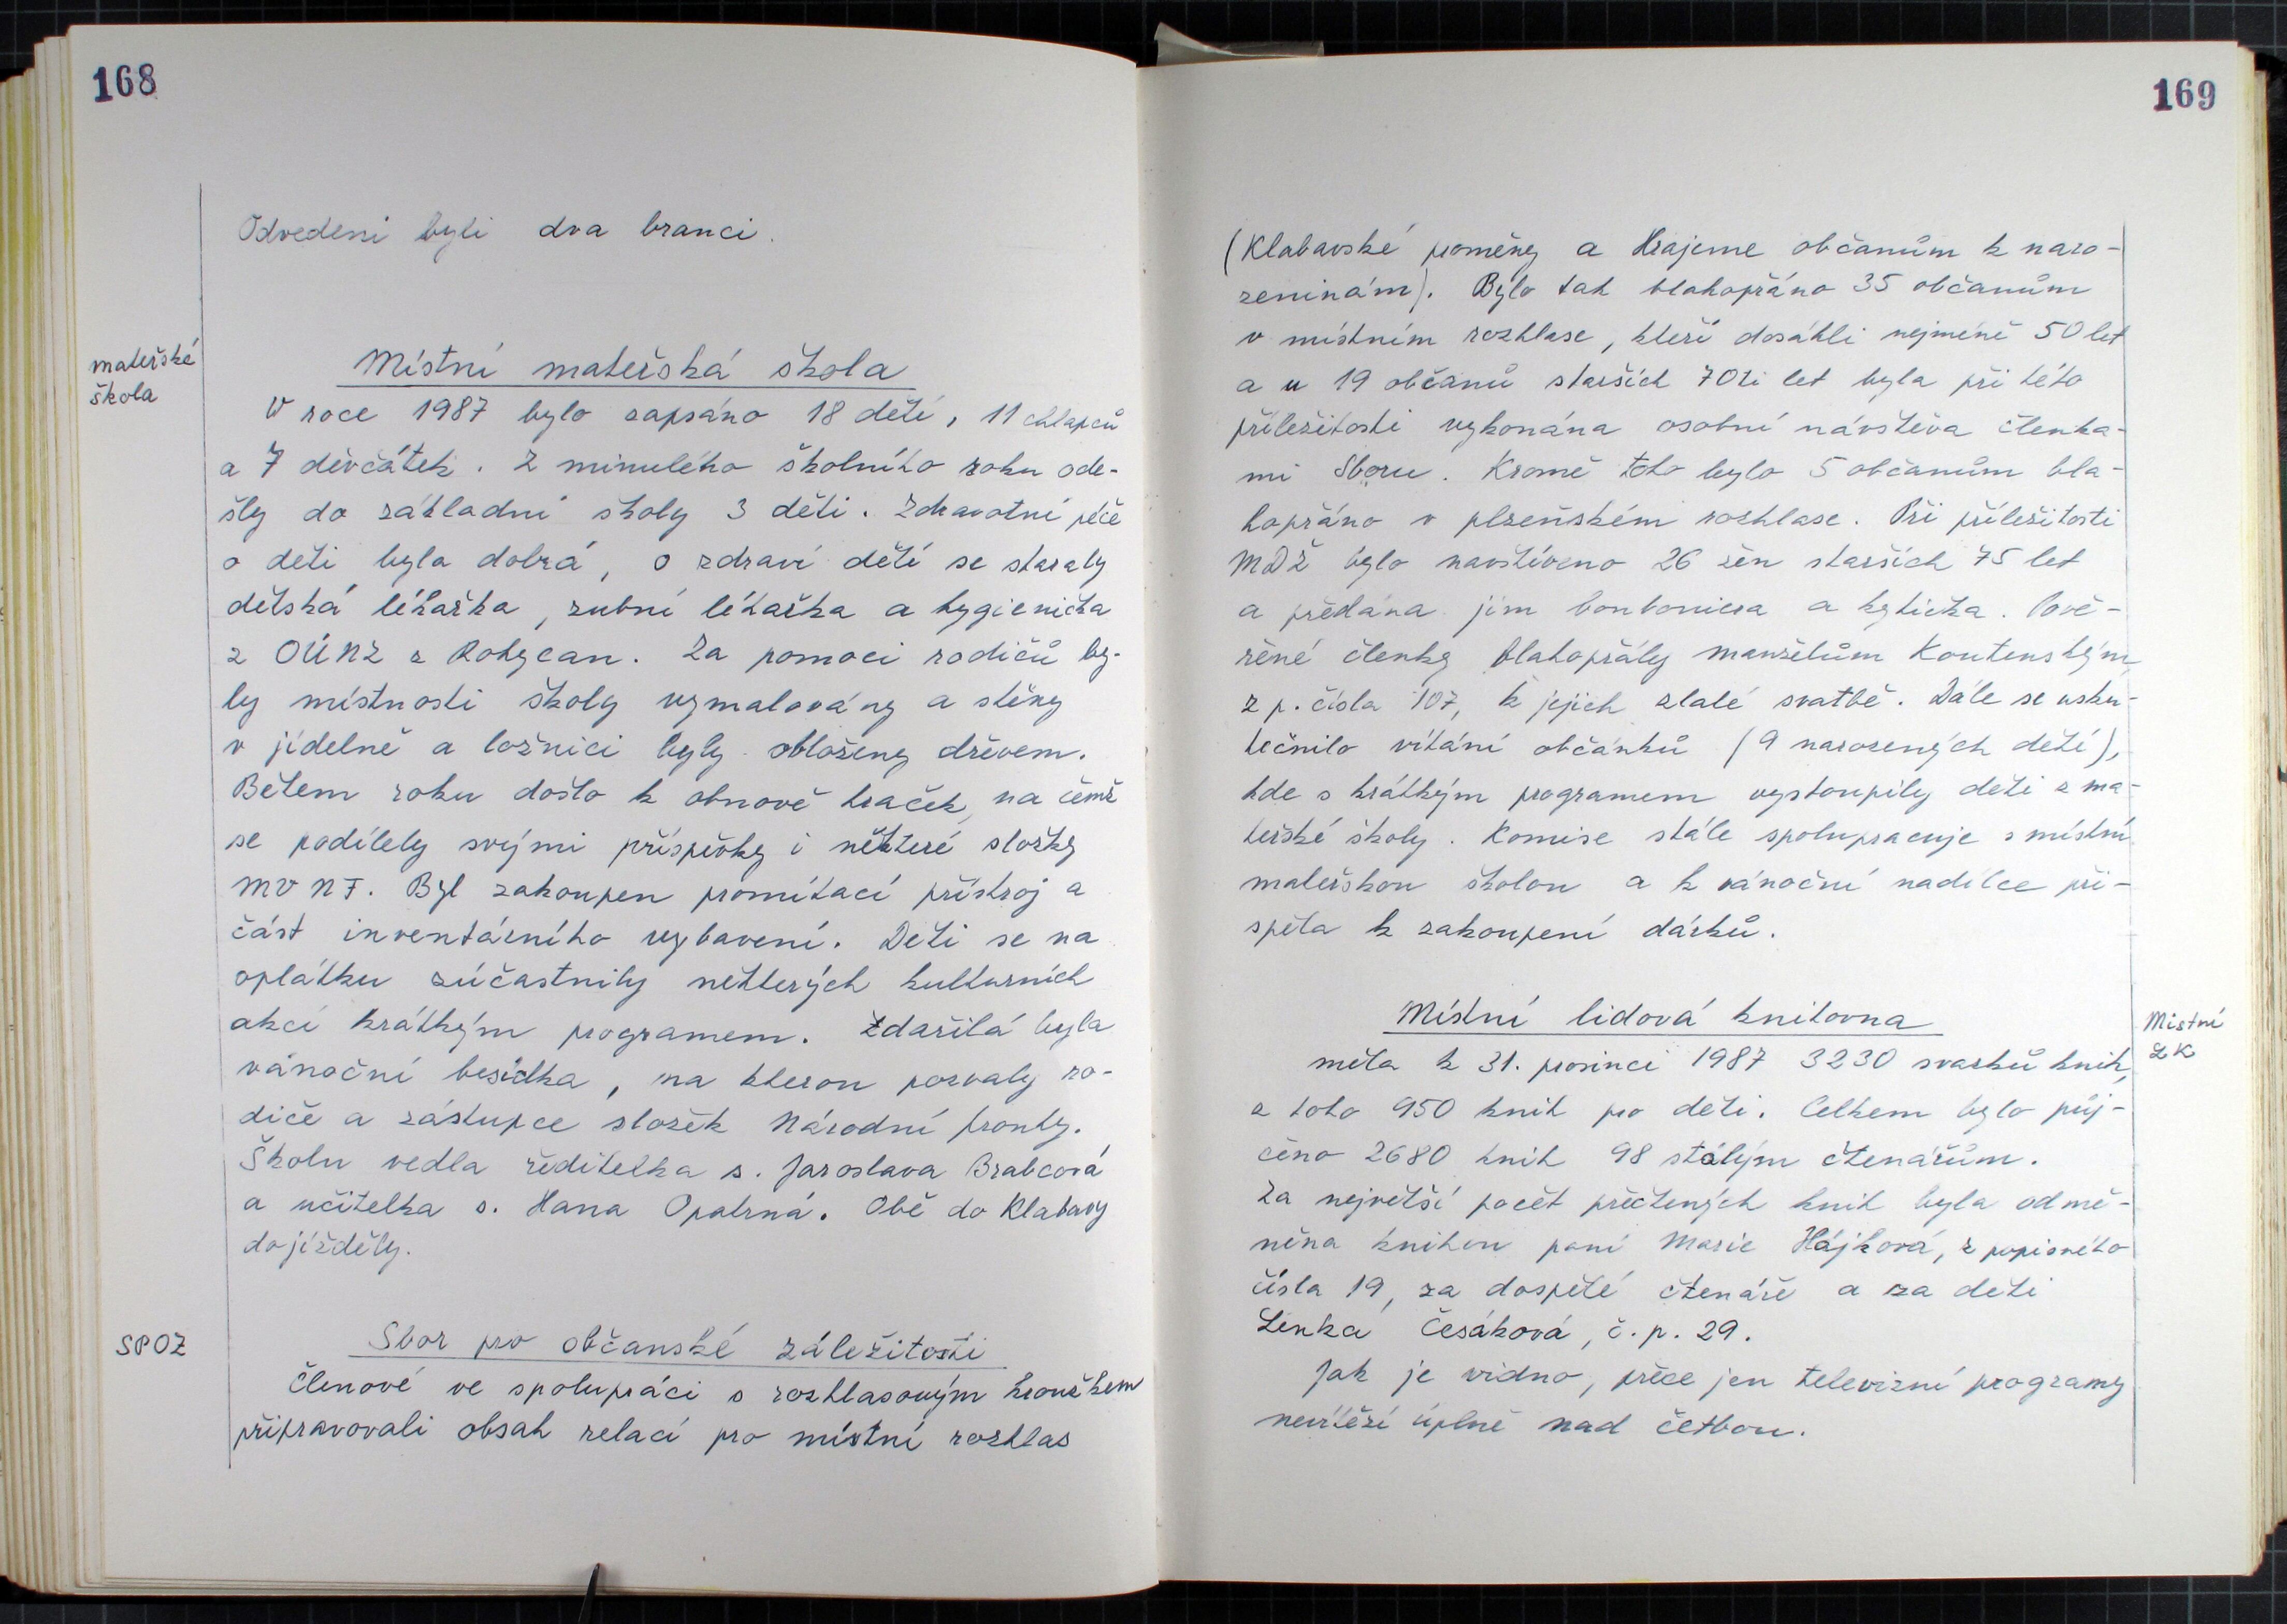 168
Odvedeni byli dva branci.
mateřská
škola
Místní mateřská škola
V roce 1987 bylo zapsáno 18 dětí, 11 chlapců
a 7 děvčátek. Z minulého školního roku ode-
šly do základní školy 3 děti. Zdravotní péče
o děti byla dobrá, o zdraví dětí se staraly
dětská lékařka, zubní lékařka a hygienička
z OÚNZ z Rokycan. Za pomoci rodičů by-
ly místnosti školy vymalovány a stěny
v jídelně a ložnici byly obloženy dřevem.
Během roku došlo k obnově hraček, na čemž
se podílely svými příspěvky i některé složky
MV NF. Byl zakoupen promítací přístroj a
část inventárního vybavení. Děti se na
oplátku zúčastnily některých kulturních
akcí krátkým programem. Zdařilá byla
vánoční besídka, na kterou pozvaly ro-
diče a zástupce složek Národní fronty.
Školu vedla ředitelka s. Jaroslava Brabcová
a učitelka s. Hana Opatrná. Obě do Klabavy
dojížděly.
SPOZ
Sbor pro občanské záležitosti
Členové ve spolupráci s rozhlasovým kroužkem
připravovali obsah relací pro místní rozhlas
169
(Klabavské proměny a Hrajeme občanům k naro-
zeninám). Bylo tak blahopřáno 35 občanům
v místním rozhlase, kteří dosáhli nejméně 50 let
a u 19 občanů starších 70ti let byla při této
příležitosti vykonána osobní návštěva členka-
mi Sboru. Kromě toho bylo 5 občanům bla-
hopřáno v plzeňském rozhlase. Při příležitosti
MDŽ bylo navštíveno 26 žen starších 75 let
a předána jim bonboniera a kytička. Pově-
řené členky blahopřály manželům Koutenským
z p. čísla 107, k jejich zlaté svatbě. Dále se usku-
tečnilo vítání občánků (9 narozených dětí),
kde s krátkým programem vystoupily děti z ma-
teřské školy. Komise stále spolupracuje s místní
mateřskou školou a k vánoční nadílce při-
spěla k zakoupení dárků.
Místní lidová knihovna
Místní
LK
měla k 31. prosinci 1987 3230 svazků knih,
z toho 950 knih pro děti. Celkem bylo půj-
čeno 2680 knih 98 stálým čtenářům.
Za největší počet přečtených knih byla odmě-
něna knihou paní Marie Hájková, z popisného
čísla 19, za dospělé čtenáře a za děti
Lenka Česáková, č. p. 29.
Jak je vidno, přece jen televizní programy
nevítězí úplně nad četbou.